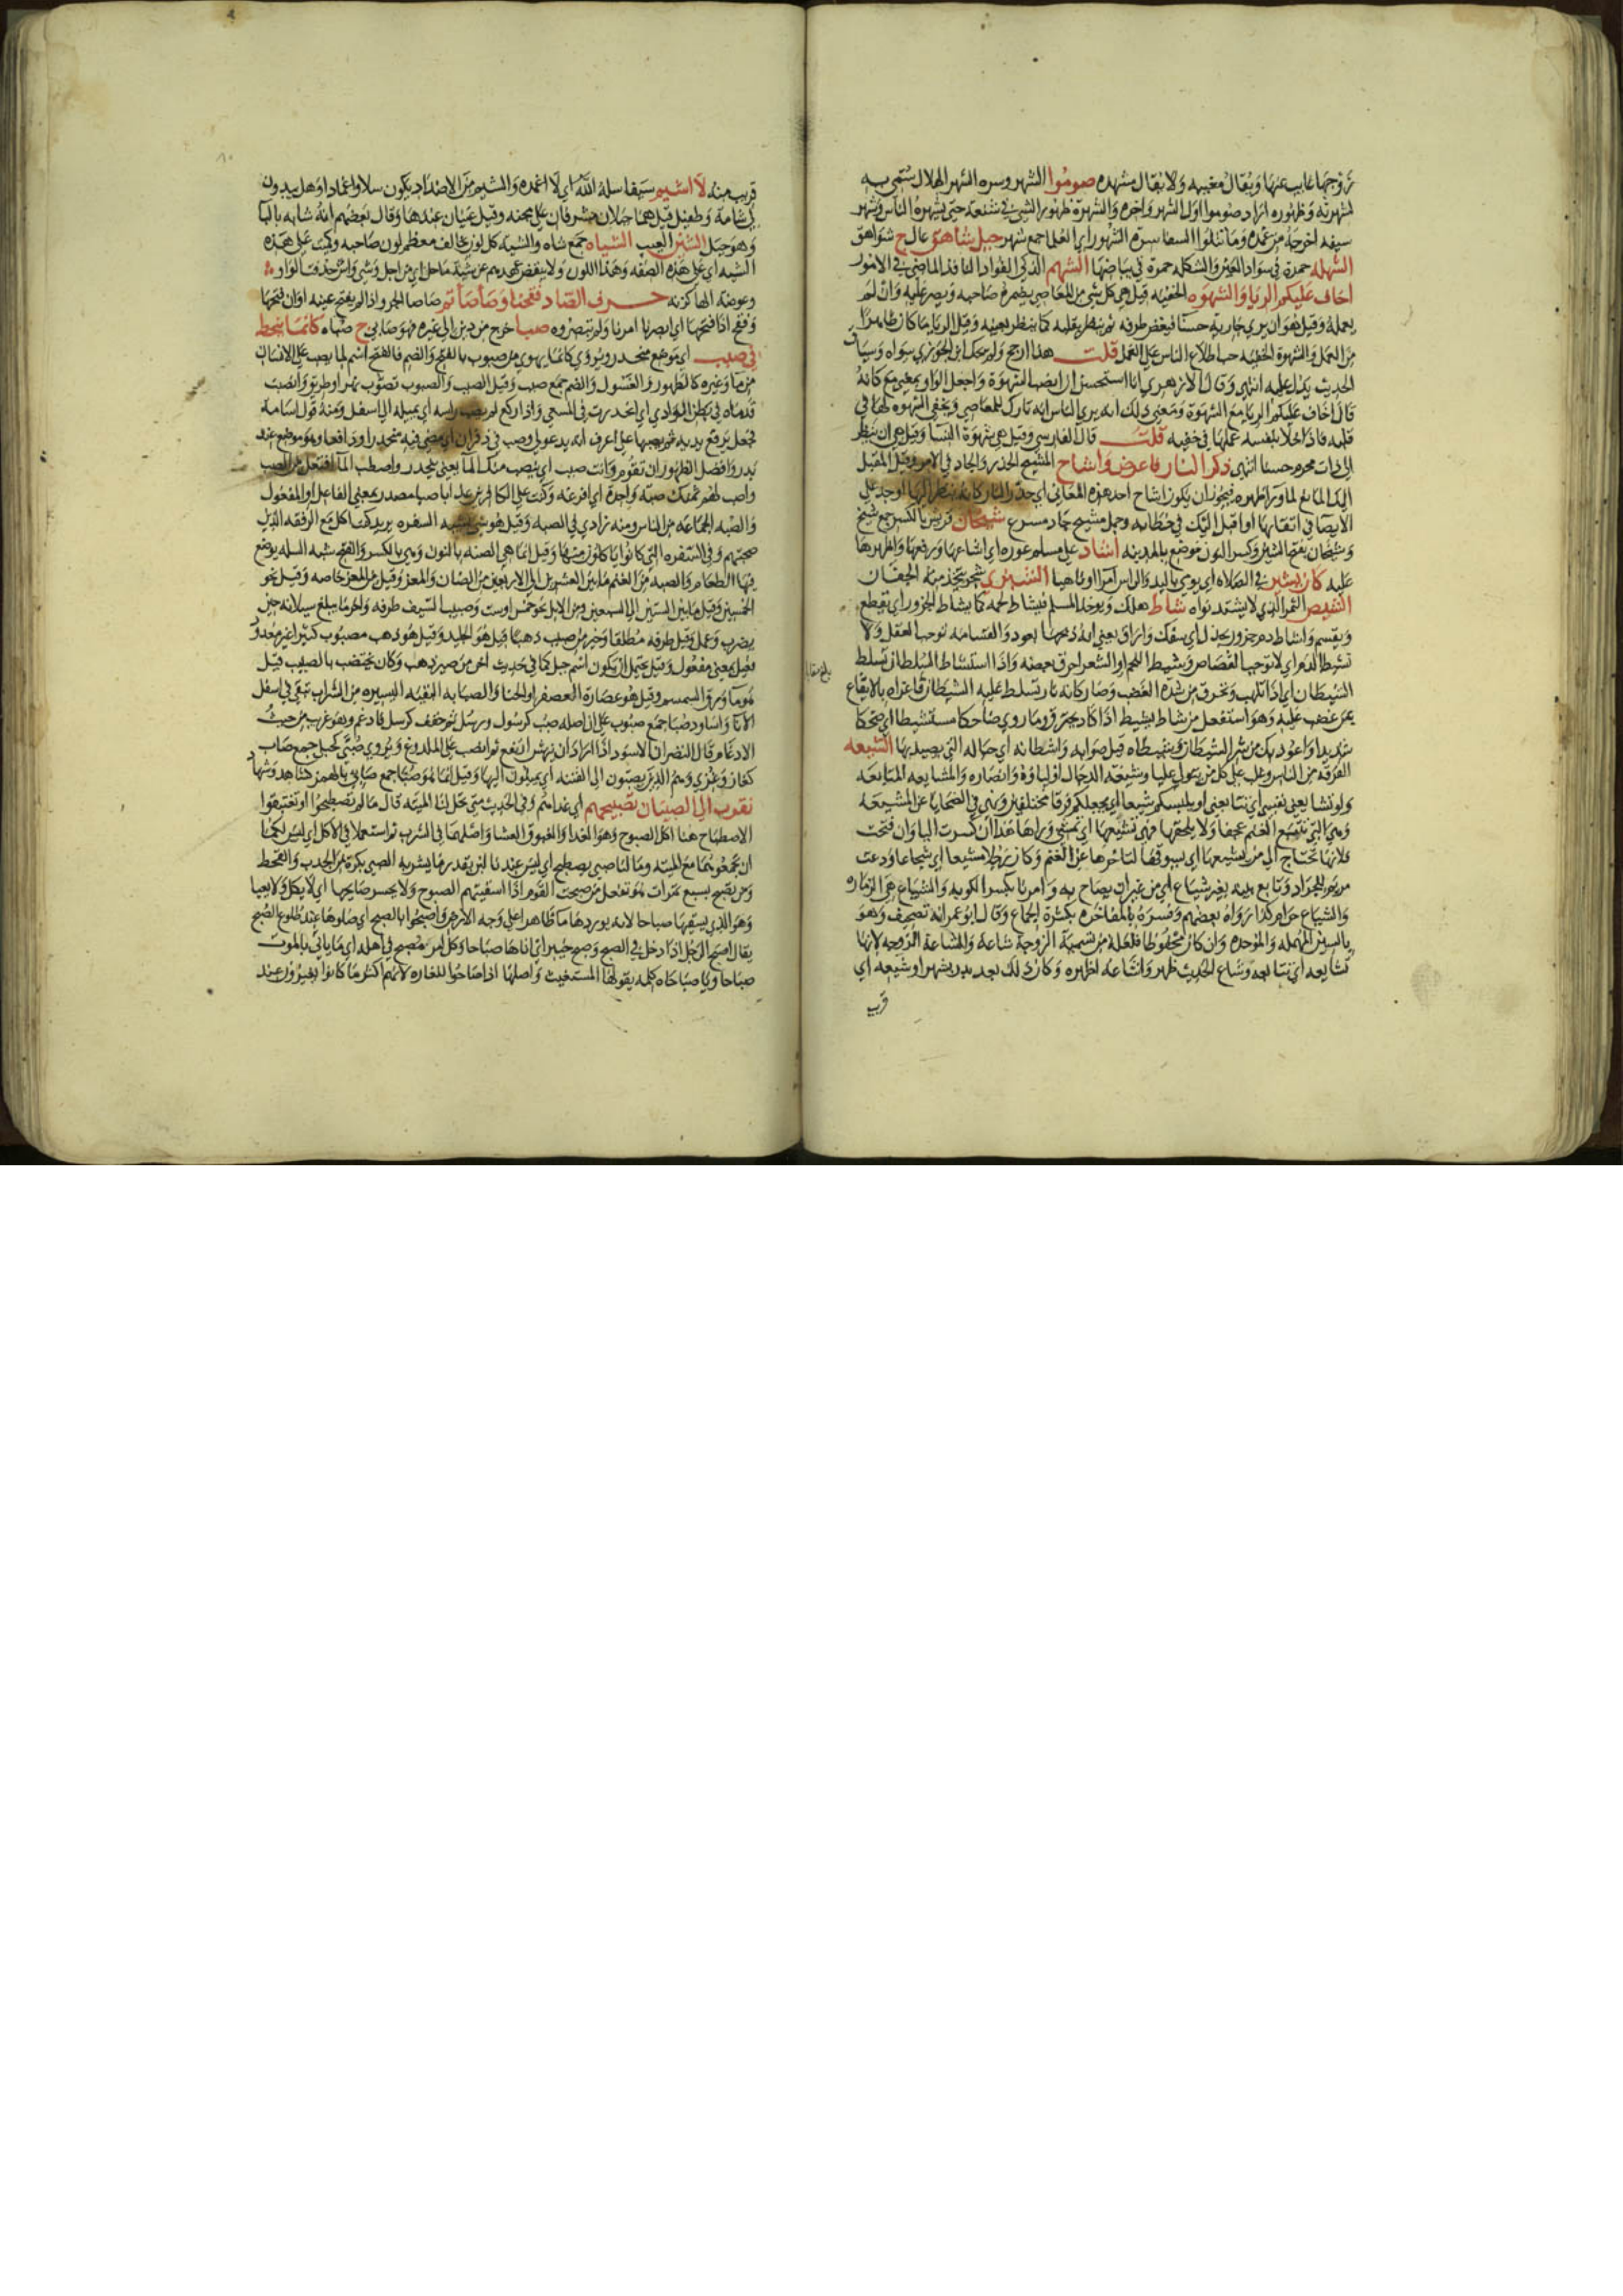 زوجها غايب عنها ويقال مغيبه ولا يقال مشهده صوموا الشهر وسره الشهر الهلال سمي به
لشهرته وظهوره اراد صوموا اول الشهر واخره والشهرة ظهور الشي في شنعة حتى يشهره الناس وشهر
سيفه اخرجه من غمده وما تتلوا السفاسرة الشهور اي العلما جمع شهر جبل شاهق عال ج شواهق
الشهله حمرة في سواد العين والشكله حمرة في بياضها الشهم الذكي الفواد النافذ الماضي في الامور
اخاف عليكم الريا والشهوه الخفيه قيل هي كل شي من المعاصي يضمره صاحبه ويصر عليه وان لم
يعمله وقيل هو ان يري جارية حسنا فيغض طرفه ثم ينظر بقلبه كما ينظر بعينه وقيل الريا ما كان ظاهرا
من العمل والشهوة الخفيه حب اطلاع الناس على العمل قلت هذا ارجح ولم يحك ابن الجوزي سواه وسياق
الحديث يدل عليه انتهى وقال الازهري انا استحسن ان انصب الشهوة واجعل الواو بمعني مع كانه
قال اخاف عليكم الريا مع الشهوة ومعنى ذلك انه يري الناس انه تارك للمعاصي ويخفي الشهوه لها في
قلبه فاذا خلا بنفسه عملها في خفيه قلت قال الفارسي وقيل هي شهوة النسا وقيل هي ان ينظر
الى ذات محرم حسنا انتهى ذكر النار فاعرض واشاح المشيح الحذر والجاد في الامر وقيل المقبل
اليك المانع لما ورا ظهره فيجوز ان يكون اشاح احد هذه المعاني اي حذر النار كانه ينظر اليها او جد على
الايصا في اتقائها او اقبل اليك في خطابه وجمل مشيح جاد مسرع شيخان قريش بالكسر جمع شيخ
وشيخان بفتح الشين وكسر النون موضع بالمدينه اشاد على مسلم عورة اي اشاعها ورفعها واظهرها
عليه كان يشير في الصلاة اي يومي باليد والراس امرا او نهيا الشيزي شجر يتخذ منه الجفان
الشيص التمر الذي لا يشتد نواه شاط هلك ويوخذ المسلم فيشاط لحمه كما يشاط الجزور اي يقطع
ويقسم واشاط دم جزور بجذل اي سفك واراق يعني انه ذبحها بعود والقسامه توجب العقل ولا
تشيط الدم اي لا توجب القصاص وشيط اللحم او الشعر احرق بعضه واذا استشاط السلطان تسلط
الشيطان اي اذا تلهب وتحرق من شدة الغضب وصار كانه نار تسلط عليه الشيطان فاغراه بالايقاع
بمن غضب عليه وهو استفعل من شاط يشيط اذا كاد يحترق وما روي ضاحكا مستشيطا اي ضحكا
شديدا واعوذ بك من شر الشيطان وشيطاه قيل صوابه واشطانه اي حباله التي يصيد بها الشيعه
الفرقه من الناس وغلب على كل من يتولى عليا وشيعة الدجال اولياؤه وانصاره والمشايعه المتابعه
وهي التي تتبع الغنم عجفا ولا يلحقها فهي تشيعها اي تمشي وراها هذا ان كسرت اليا وان فتحت
فلانها تحتاج الى من يشيعها اي يسوقها لتاخرها عن الغنم وكان رجلا مشيعا اي شجاعا ودعت
مريم للجراد وتابع بينه بغير شياع اي من غير ان يصاح به وامرنا بكسر الكوبه والشياع هي الزماره
والشياع حرام كذا رواه بعضهم وفسره بالمفاخره بكثرة الجماع وقال ابو عمر انه تصحيف وهو
بالسين المهمله والموحده وان كان محفوظا فلعله من تسمية الزوجة شاعة والمشاعة الزوجه لانها
تشايعه اي تتابعه وشاع الحديث ظهر واشاعه اظهره وكان ذلك بعد بدر بشهر او شيعه اي
قريب
قريب منه لا اشيم سيفا سله الله اي لا اغمده والشيم من الاضداد يكون سلا واغمادا وهل يبدون
لي شامة وطفيل قيل هما جبلان مشرفان على مجنه وقيل عينان عندها وقال بعضهم انه شابه بالبا
وهو جبل الشين العيب الشياه جمع شاه والشية كل لون يخالف معظم لون صاحبه وكميت على هذه
الشيه اي على هذه الصفه وهذا اللون ولا ينقض عهدهم عن شية ماحل اي من اجل وشي واش حذفت الواو منه
وعوضت الها كزنه حرف الصاد ففتحنا وصاصاتم صاصا الجرو اذا لم يفتح عينه اوان فتحها
وفقح اذا فتحها اي ابصرنا امرنا ولم تبصروه صبا خرج من دين الى غيره فهو صابي ج صباه كانما ينحط
في صبب اي موضع منحدر ويروي كانما يهوي من صبوب بالفتح والضم فالفتح اسم لما يصب على الانسان
من ما وغيره كالطهور والغسول والضم جمع صبب وقيل الصبب والصبوب تصوب نهر او طريق وانصبت
قدماه في بطن الوادي اي انحدرت في المسعى واذا ركع لم يصب راسه اي يميله الى اسفل ومنه قول اسامة
فجعل يرفع يديه ثم يصبها علي اعرف انه يدعو لي وصب في ذفران اي مضى فيه منحدرا ودافعا وهو موضع عند
بدر وافضل الطهور ان تقوم وانت صبب اي ينصب منك الما يعني يتحدر واصطب الما افتعل من الصب
واصب لهم ثمنك صبة واحدة اي افرغه وكنت على الكافرين عذابا صبا مصدر بمعنى الفاعل او المفعول
والصبه الجماعه من الناس ومنه زادي في الصبه وقيل هو شي يشبه السفره يريد كنت اكل مع الرفقه الذين
صحبتهم وفي السفره التي كانوا ياكلون منها وقيل انما هي الصنه بالنون وهي بالكسر والفتح شبه السله يوضع
فيها الطعام والصبه من الغنم ما بين العشرين الى الاربعين من الضان والمعز وقيل من المعز خاصه وقيل نحو
الخمسين وقيل ما بين الستين الى السبعين ومن الابل نحو خمس او ست وصبيب السيف طرفه واخر ما يبلغ سيلانه حين
يضرب وعمل وقيل طرفه مطلقا وخير من صبيب ذهبا قيل هو الجليد وقيل هو ذهب مصبوب كثيرا غير معدود
فعيل بمعنى مفعول وقيل يحتمل ان يكون اسم جبل كما في حديث اخر من صبر ذهب وكان يختضب بالصبيب قيل
هو ما ورق السمسم وقيل هو عصارة العصفر او الحنا والصبابه البقيه اليسيره من الشراب تبقى في اسفل
الانا واساود صبا جمع صبوب على ان اصله صبب كرسول ورسل ثم خفف كرسل فادغم وهو غريب من حيث
الادغام وقال النضر ان الاسود اذا اراد ان ينهش ارتفع ثم انصب على الملدوغ ويروي صبى كحبلى جمع صاب
كغاز وغزي وهم الذين يصبون الى الفتنه اي يميلون اليها وقيل انما هو صبا جمع صابي بالهمز كشاهد وشهاد
نقوب الى الصبيان تصبيحهم اي غداهم وفي الحديث متى تحل لنا الميته قال ما لم تصطبحوا او تغتبقوا
الاصطباح هنا اكل الصبوح وهو الغدا والغبوق العشا واصلهما في الشرب ثم استعملا في الاكل اي ليس لكم
ان تجمعوهما مع الميتة وما لنا صبي يصطبح اي ليس عندنا لبن بقدر ما يشربه الصبي بكرة من الجدب والقحط
ومن يصبح بسبع تمرات هو تفعل من صبحت القوم اذا اسقيتهم الصبوح ولا يحسر صابحها اي لا يكل ولا يعيا
وهو الذي يسقيها صباحا لانه يوردها ما ظاهرا على وجه الارض واصبحوا بالصبح اي صلوها عند طلوع الصبح
يقال اصبح الرجل اذا دخل في الصبح وصبح خيبر اي اتاها صباحا وكل امر مصبح في اهله اي ماياتي بالموت
صباحا ويا صباحاه كلمه يقولها المستغيث واصلها اذا صاحوا للغاره لانهم اكثر ما كانوا يغيرون عند